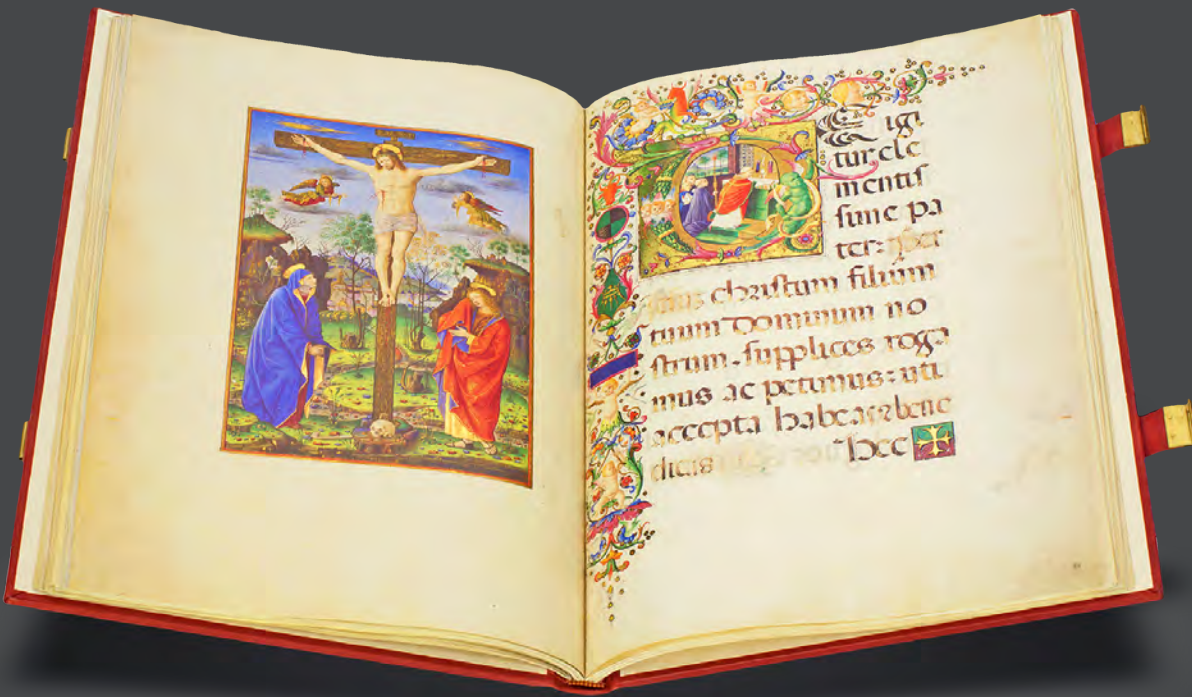 TE igi
tur cle
mentiſ
ſime pa
ter: per
christum filium
tuum dominum no
strum. supplices roga
mus ac petimus: uti
accepta habeas bene
dicas hec